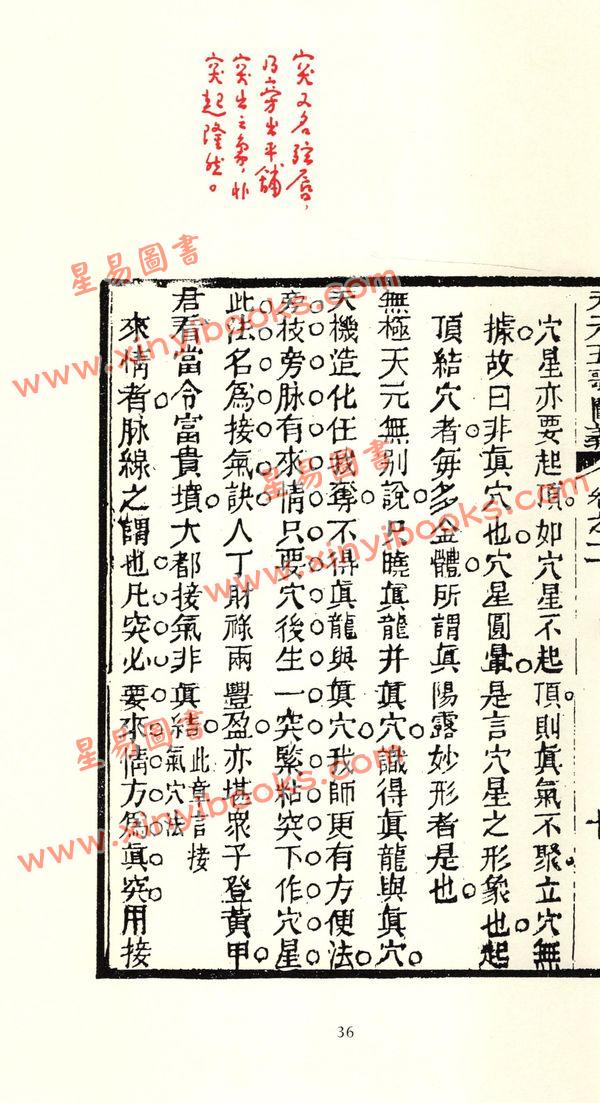 突又名弦唇，
乃旁出平鋪
突出之象，非
突起隆然。
天元五歌闡義 卷之二 十
穴星亦要起頂。如穴星不起頂。則眞氣不聚。立穴無
據故曰非眞穴也穴星圓暈是言穴星之形象也起
頂結穴者每多金體所謂眞陽露妙形者是也
無極天元無別說只曉眞龍并眞穴識得眞龍與眞穴
天機造化任我奪不得眞龍與眞穴我師更有方便法
旁枝旁脉有來情只要穴後生一突緊粘突下作穴星
此法名爲接氣訣人丁財祿兩豐盈亦堪衆子登黃甲
君看當令富貴墳大都接氣非眞結
此章言接
氣穴法
來情者脉線之謂也凡突必要來情方爲眞突用接
36
星易圖書
www.xinyibooks.com
星易圖書
www.xinyibooks.com
星易圖書
www.xinyibooks.com